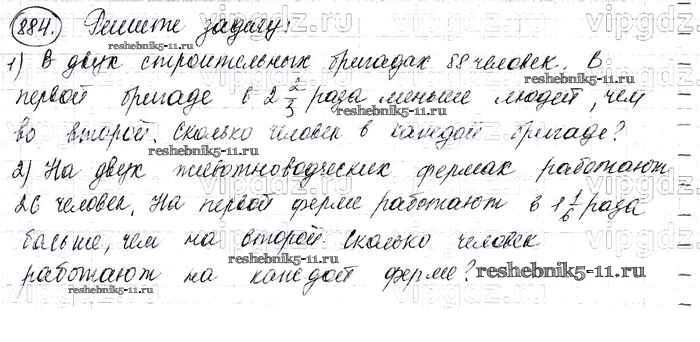 884. Решите задачу:
1) В двух строительных бригадах 88 человек. В
первой бригаде в 2 2/3 раза меньше людей, чем
во второй. Сколько человек в каждой бригаде?
2) На двух животноводческих фермах работают
26 человек. На первой ферме работают в 1 1/6 раза
больше, чем на второй. Сколько человек
работают на каждой ферме?
reshebnik5-11.ru
reshebnik5-11.ru
reshebnik5-11.ru
reshebnik5-11.ru
reshebnik5-11.ru
reshebnik5-11.ru
vipgdz.ru
vipgdz
vipgdz.ru
vipgdz
vipgdz.ru
vipgdz
vipgdz.ru
vipgdz